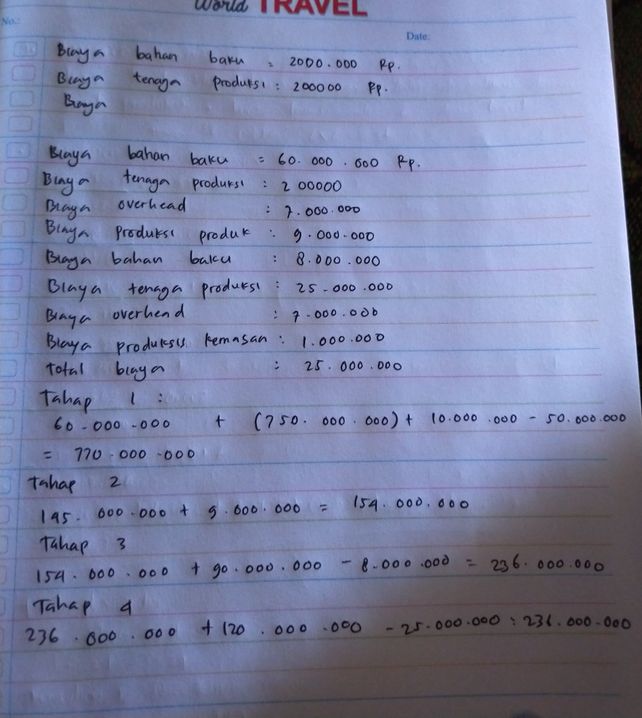 World TRAVEL
No.:
Date:
Biaya bahan baku : 2000.000 Rp.
Biaya tenaga produksi : 200000 Rp.
Biaya
Biaya bahan baku = 60.000.000 Rp.
Biaya tenaga produksi : 200000
Biaya overhead : 7.000.000
Biaya produksi produk : 9.000.000
Biaya bahan baku : 8.000.000
Biaya tenaga produksi : 25.000.000
Biaya overhead : 7.000.000
Biaya produksis kemasan : 1.000.000
Total biaya : 25.000.000
Tahap 1 :
60.000.000 + (750.000.000) + 10.000.000 - 50.000.000
= 770.000.000
Tahap 2
145.000.000 + 9.000.000 = 154.000.000
Tahap 3
154.000.000 + 90.000.000 - 8.000.000 = 236.000.000
Tahap 4
236.000.000 + 120.000.000 - 25.000.000 : 236.000.000